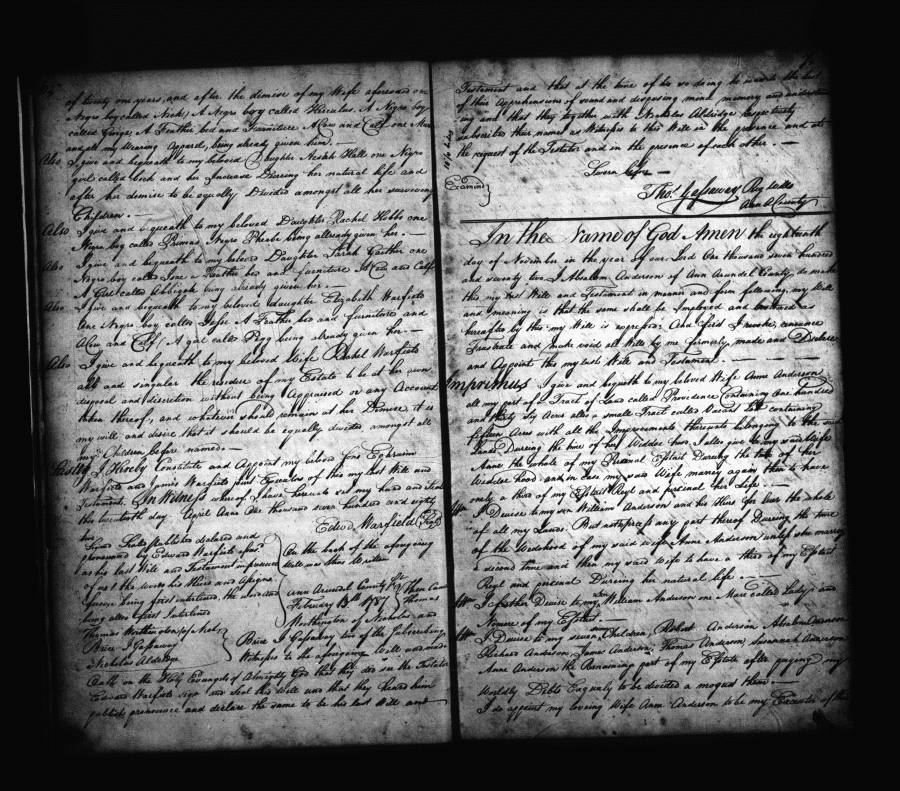 of twenty one years, and after the demise of my Wife aforesaid one
Negro boy called Nick, A Negro boy called Hercules, A Negro boy
called George, A Feather bed and Furniture A Cow and Calf one
and all my Wearing Apparel, being already given him. —
Also I give and bequeath to my beloved Daughter Hall one Negro
girl called beck and her Increase Dureing her natural life and
after her demise to be equally Divided amongst all her surviveing
Children. —
Also I give and bequeath to my beloved Daughter Rachel Hobbs one
Negro boy called Primus, Negro Pheabe being allready given her. —
Also I give and bequeath to my beloved Daughter Sarah Gaither one
Negro boy called A Feather bed and furniture A Cow and Calf
A Girl called Abbigah being already given her. —
Also I give and bequeath to my beloved daughter Elizabeth Warfield
One Negro boy called A Feather bed and furniture and
A Cow and Calf, A girl called Pegg being already given her. —
Also I give and bequeath to my beloved Wife Rachel Warfield
all and singular the residue of my Estate to be at her own
disposal and discretion without being Appraised or any Account
taken thereof, and whatever should remain at her Demise, it is
my will and desire that it should be equally divided amongst all
my Children before named —
Lastly I Hereby Constitute and Appoint my beloved Sons Ephraim
Warfield and James Warfield joint Executors of this my last Will and
Testament. In Witness whereof I have hereunto set my hand and Seal
this twentieth day April Anno One thousand seven hundred and eighty
Edwd. Warfield (Seal)
Signed Sealed published declared and
pronounced by Edward Warfield afore
as his last Will and Testament in presence
of us the words his Heirs and Assigns
forever being first interlined, the word
being also first Interlined
Thomas Worthington of Nichs.
Brice J Gassaway
Nicholas Aldridge
On the back of the aforegoing
Will was thus Written
Ann Arundel County Sct.
February 13th 1787 Then Came
Thomas
Worthington of Nicholas and
Brice J Gassaway two of the Subscribing
Witnesses to the aforegoing Will and made
Oath on the Holy Evangels of Almighty God that they did see the Testator
Edward Warfield sign and Seal this Will and that they heard him
publish pronounce and declare the same to be his last Will and
Testament and that at the time of his so doing he was to the best
of their Apprehensions of sound and disposing mind memory and
and that they together with Nicholas Aldridge respectively
subscribed their names as Witnesses to this Will in the presence and at
the request of the Testator and in the presence of each other. —
Sworn before —
Examined
Thos. Gassaway Reg Wills
Ann Al County
In the Name of God Amen the eighteenth
day of November in the year of our Lord One thousand seven hundred
and seventy two I Absalom Anderson of Ann Arundel County do make
this my last Will and Testament in manner and form following, my Will
and meaning is that the same shall be Imployed and bestowed as
hereafter by this my Will is expressed: And first I revoke, renounce
Frustrate and make void all Wills by me formerly made and Declare
and Appoint this my last Will and Testament. —
Imprimus I give and bequeath to my beloved Wife Anne Anderson
all my part of a Tract of Land called Providence Containing One hundred
and thirty six Acres allso a small Tract called containing
fifteen Acres with all the Improvements thereunto belonging to the said
Lands Dureing the time of her Widdow hood. I allso give to my said Wife
Anne the Whole of my Personal Estate Dureing the time of her
Widdow hood and in case my said Wife marrey again then to have
only a third of my Estate Reyl and personal her Life —
Itm I Devise to my son William Anderson and his Heirs for Ever the whole
of all my Lands But not possess any part thereof Dureing the time
of the Wedohood of my said wife Anne Anderson unless she marrey
a second time and then my said Wife to have a third of my Estate
Reyl and personal Dureing her natural life —
Itm I further Devise to my son William Anderson one Mare called Lady and
Nomore of my Estate —
Itm I Devise to my seven Children, Robert Anderson Absalom Anderson
Richard Anderson, Jane Anderson, Thomas Anderson Susannah Anderson
Anne Anderson the Remaining part of my Estate after paying my
Worldly Debts Equaly to be divided a mongst them —
I do appoint my loveing Wife Ann Anderson to be my Executor of this